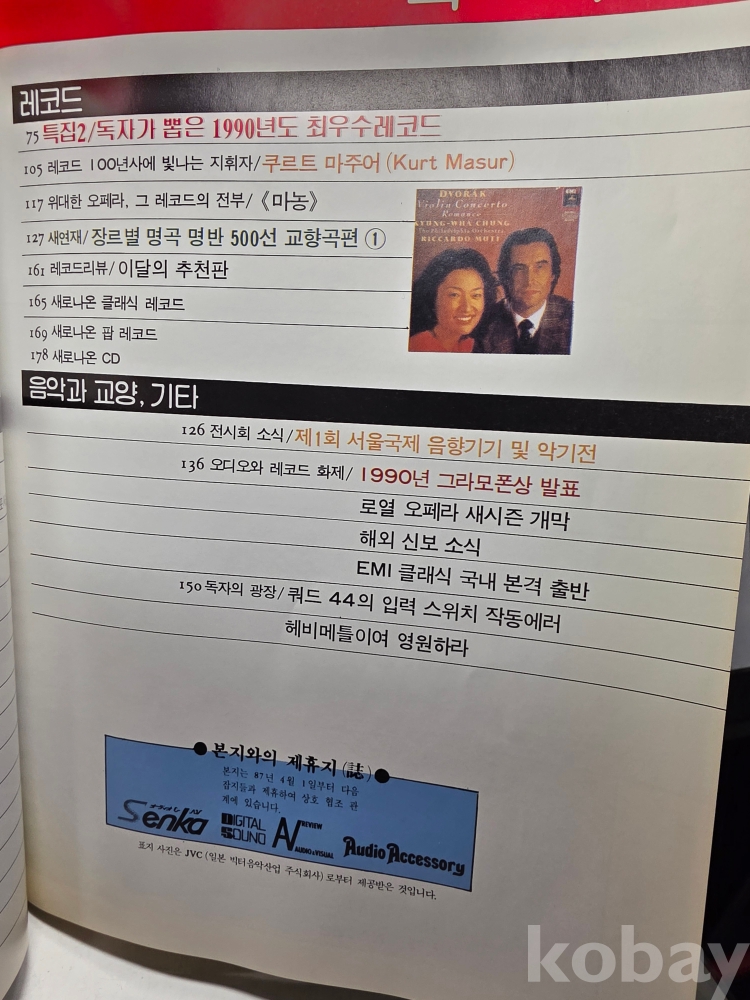 레코드
75 특집2/독자가 뽑은 1990년도 최우수레코드
105 레코드 100년사에 빛나는 지휘자/쿠르트 마주어(Kurt Masur)
117 위대한 오페라, 그 레코드의 전부/《마농》
127 새연재/장르별 명곡 명반 500선 교향곡편 ①
161 레코드리뷰/이달의 추천판
165 새로나온 클래식 레코드
169 새로나온 팝 레코드
178 새로나온 CD
DVORAK
Violin Concerto
Romance
KYUNG-WHA CHUNG
The Philadelphia Orchestra
RICCARDO MUTI
EMI
음악과 교양, 기타
126 전시회 소식/제1회 서울국제 음향기기 및 악기전
136 오디오와 레코드 화제/1990년 그라모폰상 발표
로열 오페라 새시즌 개막
해외 신보 소식
EMI 클래식 국내 본격 출반
150 독자의 광장/쿼드 44의 입력 스위치 작동에러
헤비메틀이여 영원하라
●본지와의 제휴지(誌)●
본지는 87년 4월 1일부터 다음
잡지들과 제휴하여 상호 협조 관
계에 있습니다.
Senka DIGITAL SOUND AV REVIEW AUDIO & VISUAL Audio Accessory
표지 사진은 JVC (일본 빅터음악산업 주식회사)로부터 제공받은 것입니다.
kobay